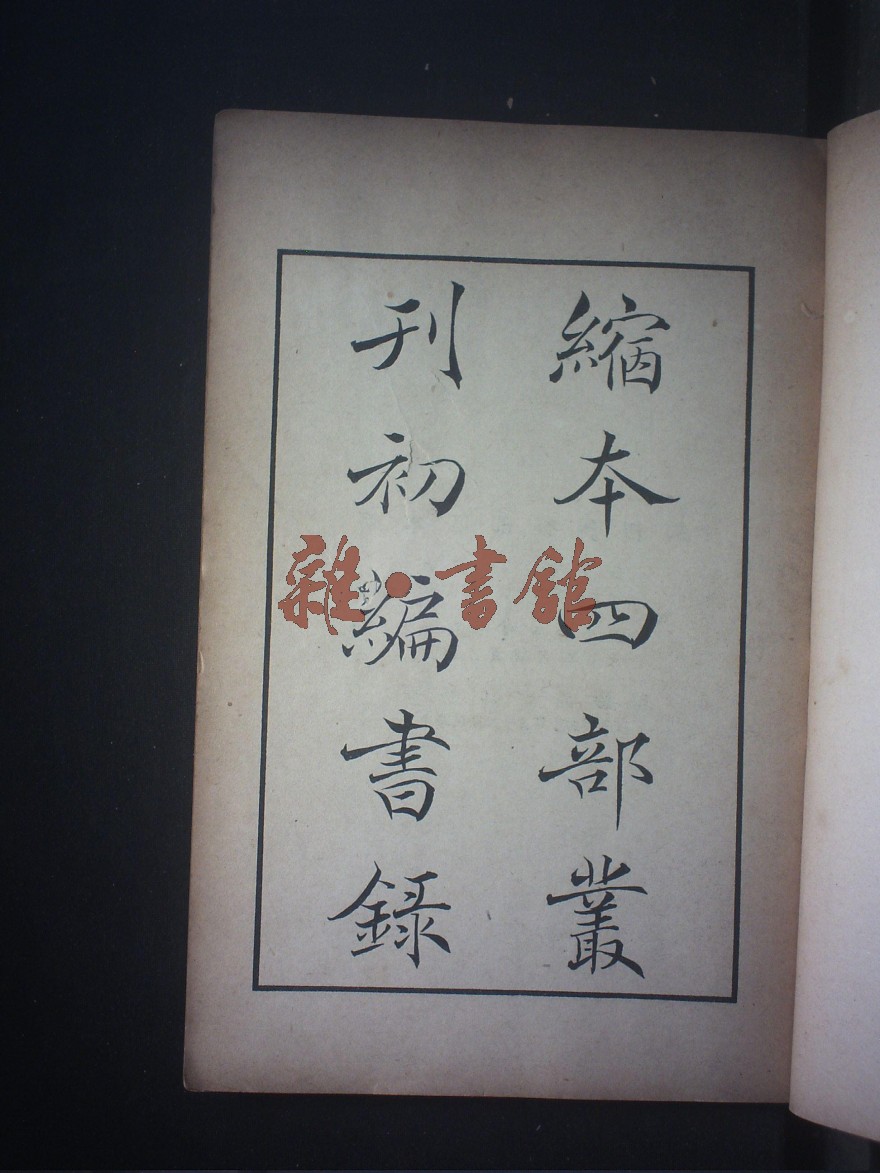 縮本四部叢
刊初編書錄
雜·書館